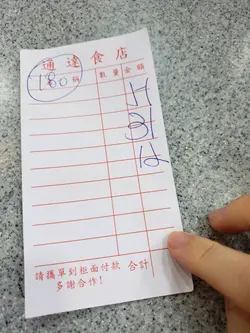 通達食店
180 例 數量 金額
H
31
12
請攜單到柜面付款 合計
多謝合作！